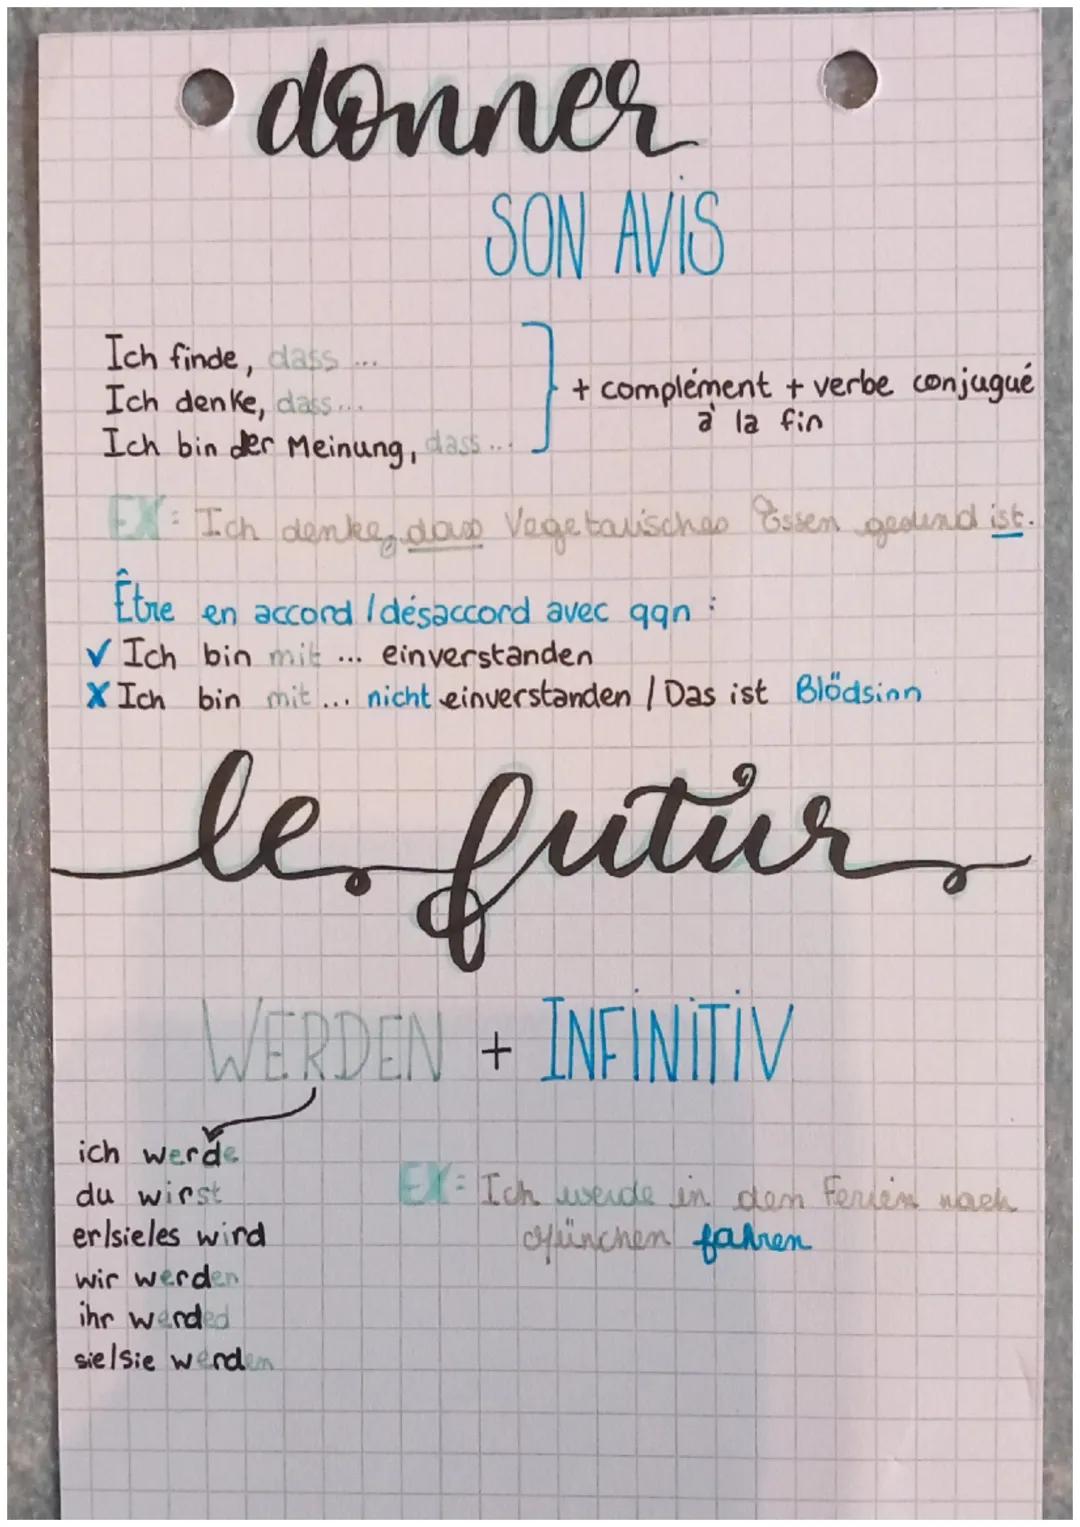 donner
SON AVIS
Ich finde, dass ...
Ich denke, dass...
Ich bin der Meinung, dass...
+ complément + verbe conjugué
à la fin
EX: Ich denke, dass Vegetarisches Essen gesund ist.
Être en accord / désaccord avec qqn :
✓ Ich bin mit ... einverstanden
X Ich bin mit ... nicht einverstanden / Das ist Blödsinn
le futur
WERDEN + INFINITIV
ich werde
du wirst
er/sie/es wird
wir werden
ihr werded
sie/Sie werden
EX: Ich werde in den Ferien nach
München fahren